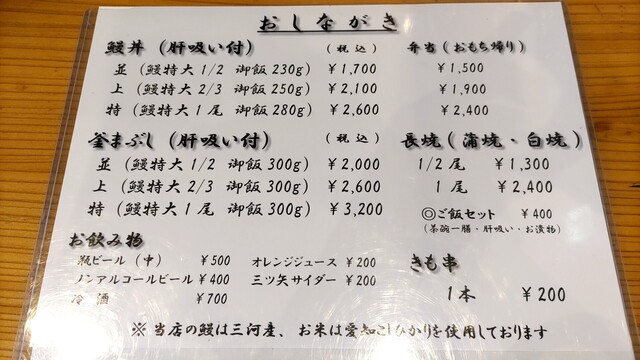 おしながき
鰻丼(肝吸い付) (税込)
並(鰻特大1/2 御飯230g) ¥1,700
上(鰻特大2/3 御飯250g) ¥2,100
特(鰻特大1尾 御飯280g) ¥2,600
弁当(おもち帰り)
¥1,500
¥1,900
¥2,400
釜まぶし(肝吸い付) (税込)
並(鰻特大1/2 御飯300g) ¥2,000
上(鰻特大2/3 御飯300g) ¥2,600
特(鰻特大1尾 御飯300g) ¥3,200
長焼(蒲焼・白焼)
1/2尾 ¥1,300
1尾 ¥2,400
◎ご飯セット ¥400
(茶碗一膳・肝吸い・お漬物)
お飲み物
瓶ビール(中) ¥500
ノンアルコールビール ¥400
冷酒 ¥700
オレンジジュース ¥200
三ツ矢サイダー ¥200
きも串
1本 ¥200
※当店の鰻は三河産、お米は愛知こしひかりを使用しております